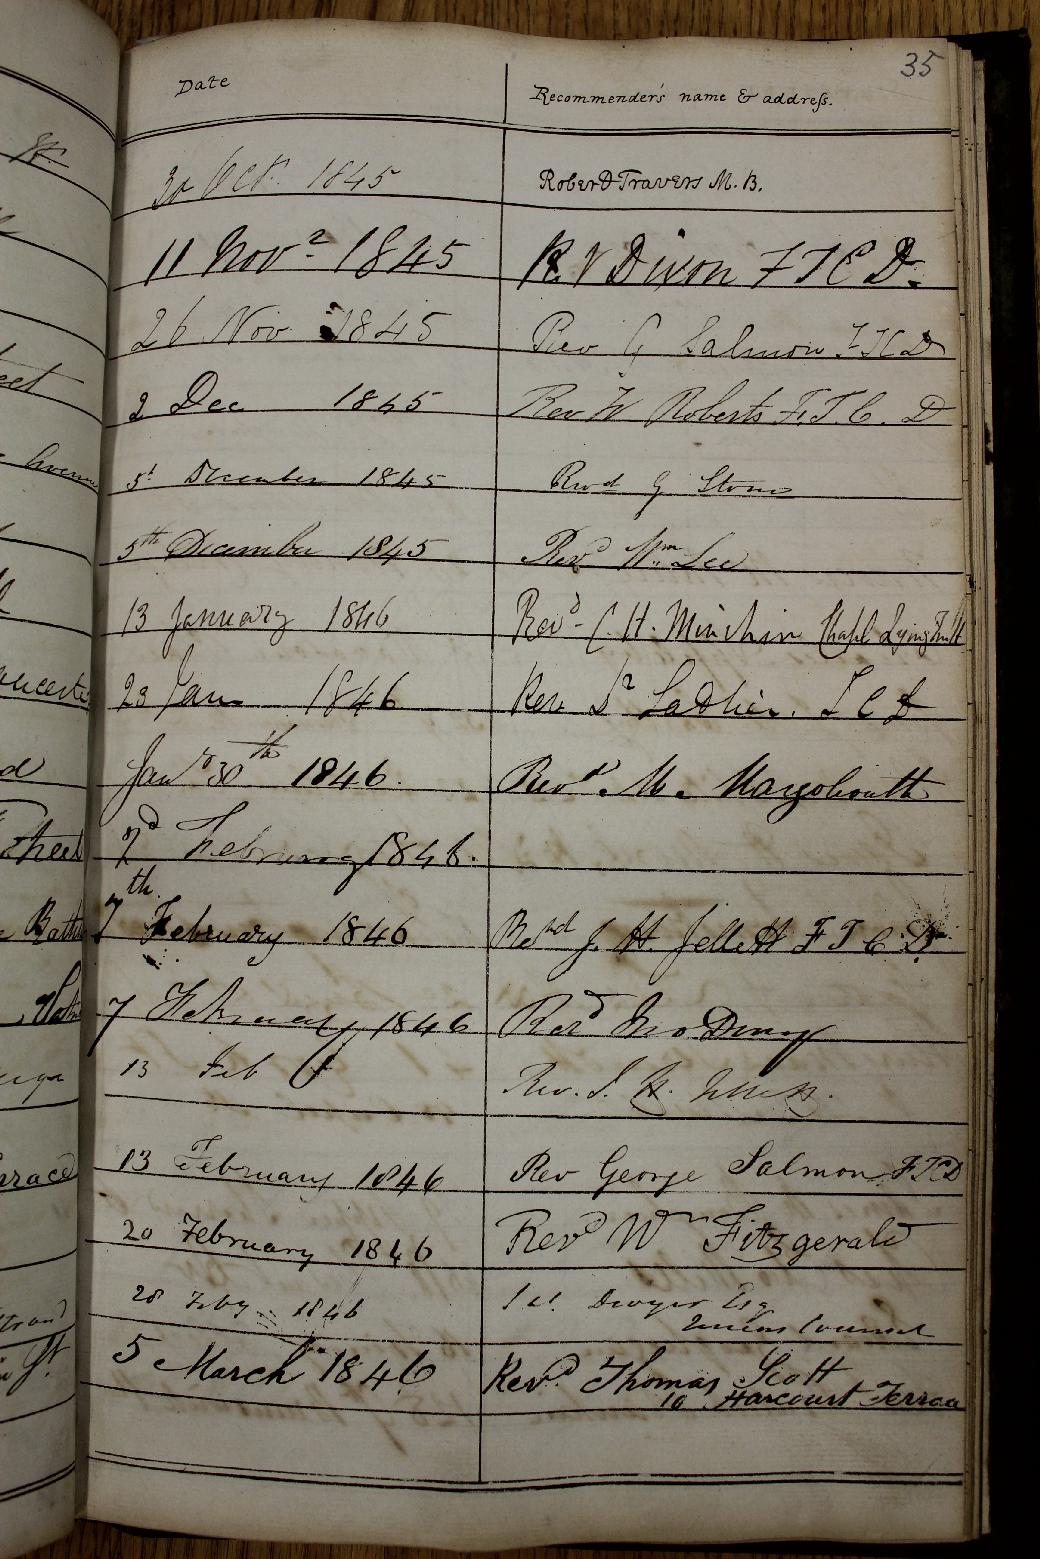 35
Date Recommender's name & address.
30 Oct. 1845 Robert Travers M.B.
11 Nov 1845 R V Dixon F T C D.
26 Nov 1845 Rev G Salmon F T C D
2 Dec 1845 Rev W Roberts F. T. C. D
5t December 1845 Revd G Stone
5th December 1845 Revd Wm Lee
13 January 1846 Revd C. H. Minchin Chapl Lying
23 Jan 1846 Rev Dr Sadlier. T C D
30th 1846. Revd M. Margoliouth
2d February 1846.
7th February 1846 J. H. Jellett F T C D.
7 February 1846 Revd
13 Feb Rev. J. H. Jellett.
13 February 1846 Rev George Salmon F.T.C.D
20 February 1846 Revd Wm Fitzgerald
28 Feby 1846 Dwyer Esq
5 March 1846 Revd Thomas Scott
10 Harcourt Terrace